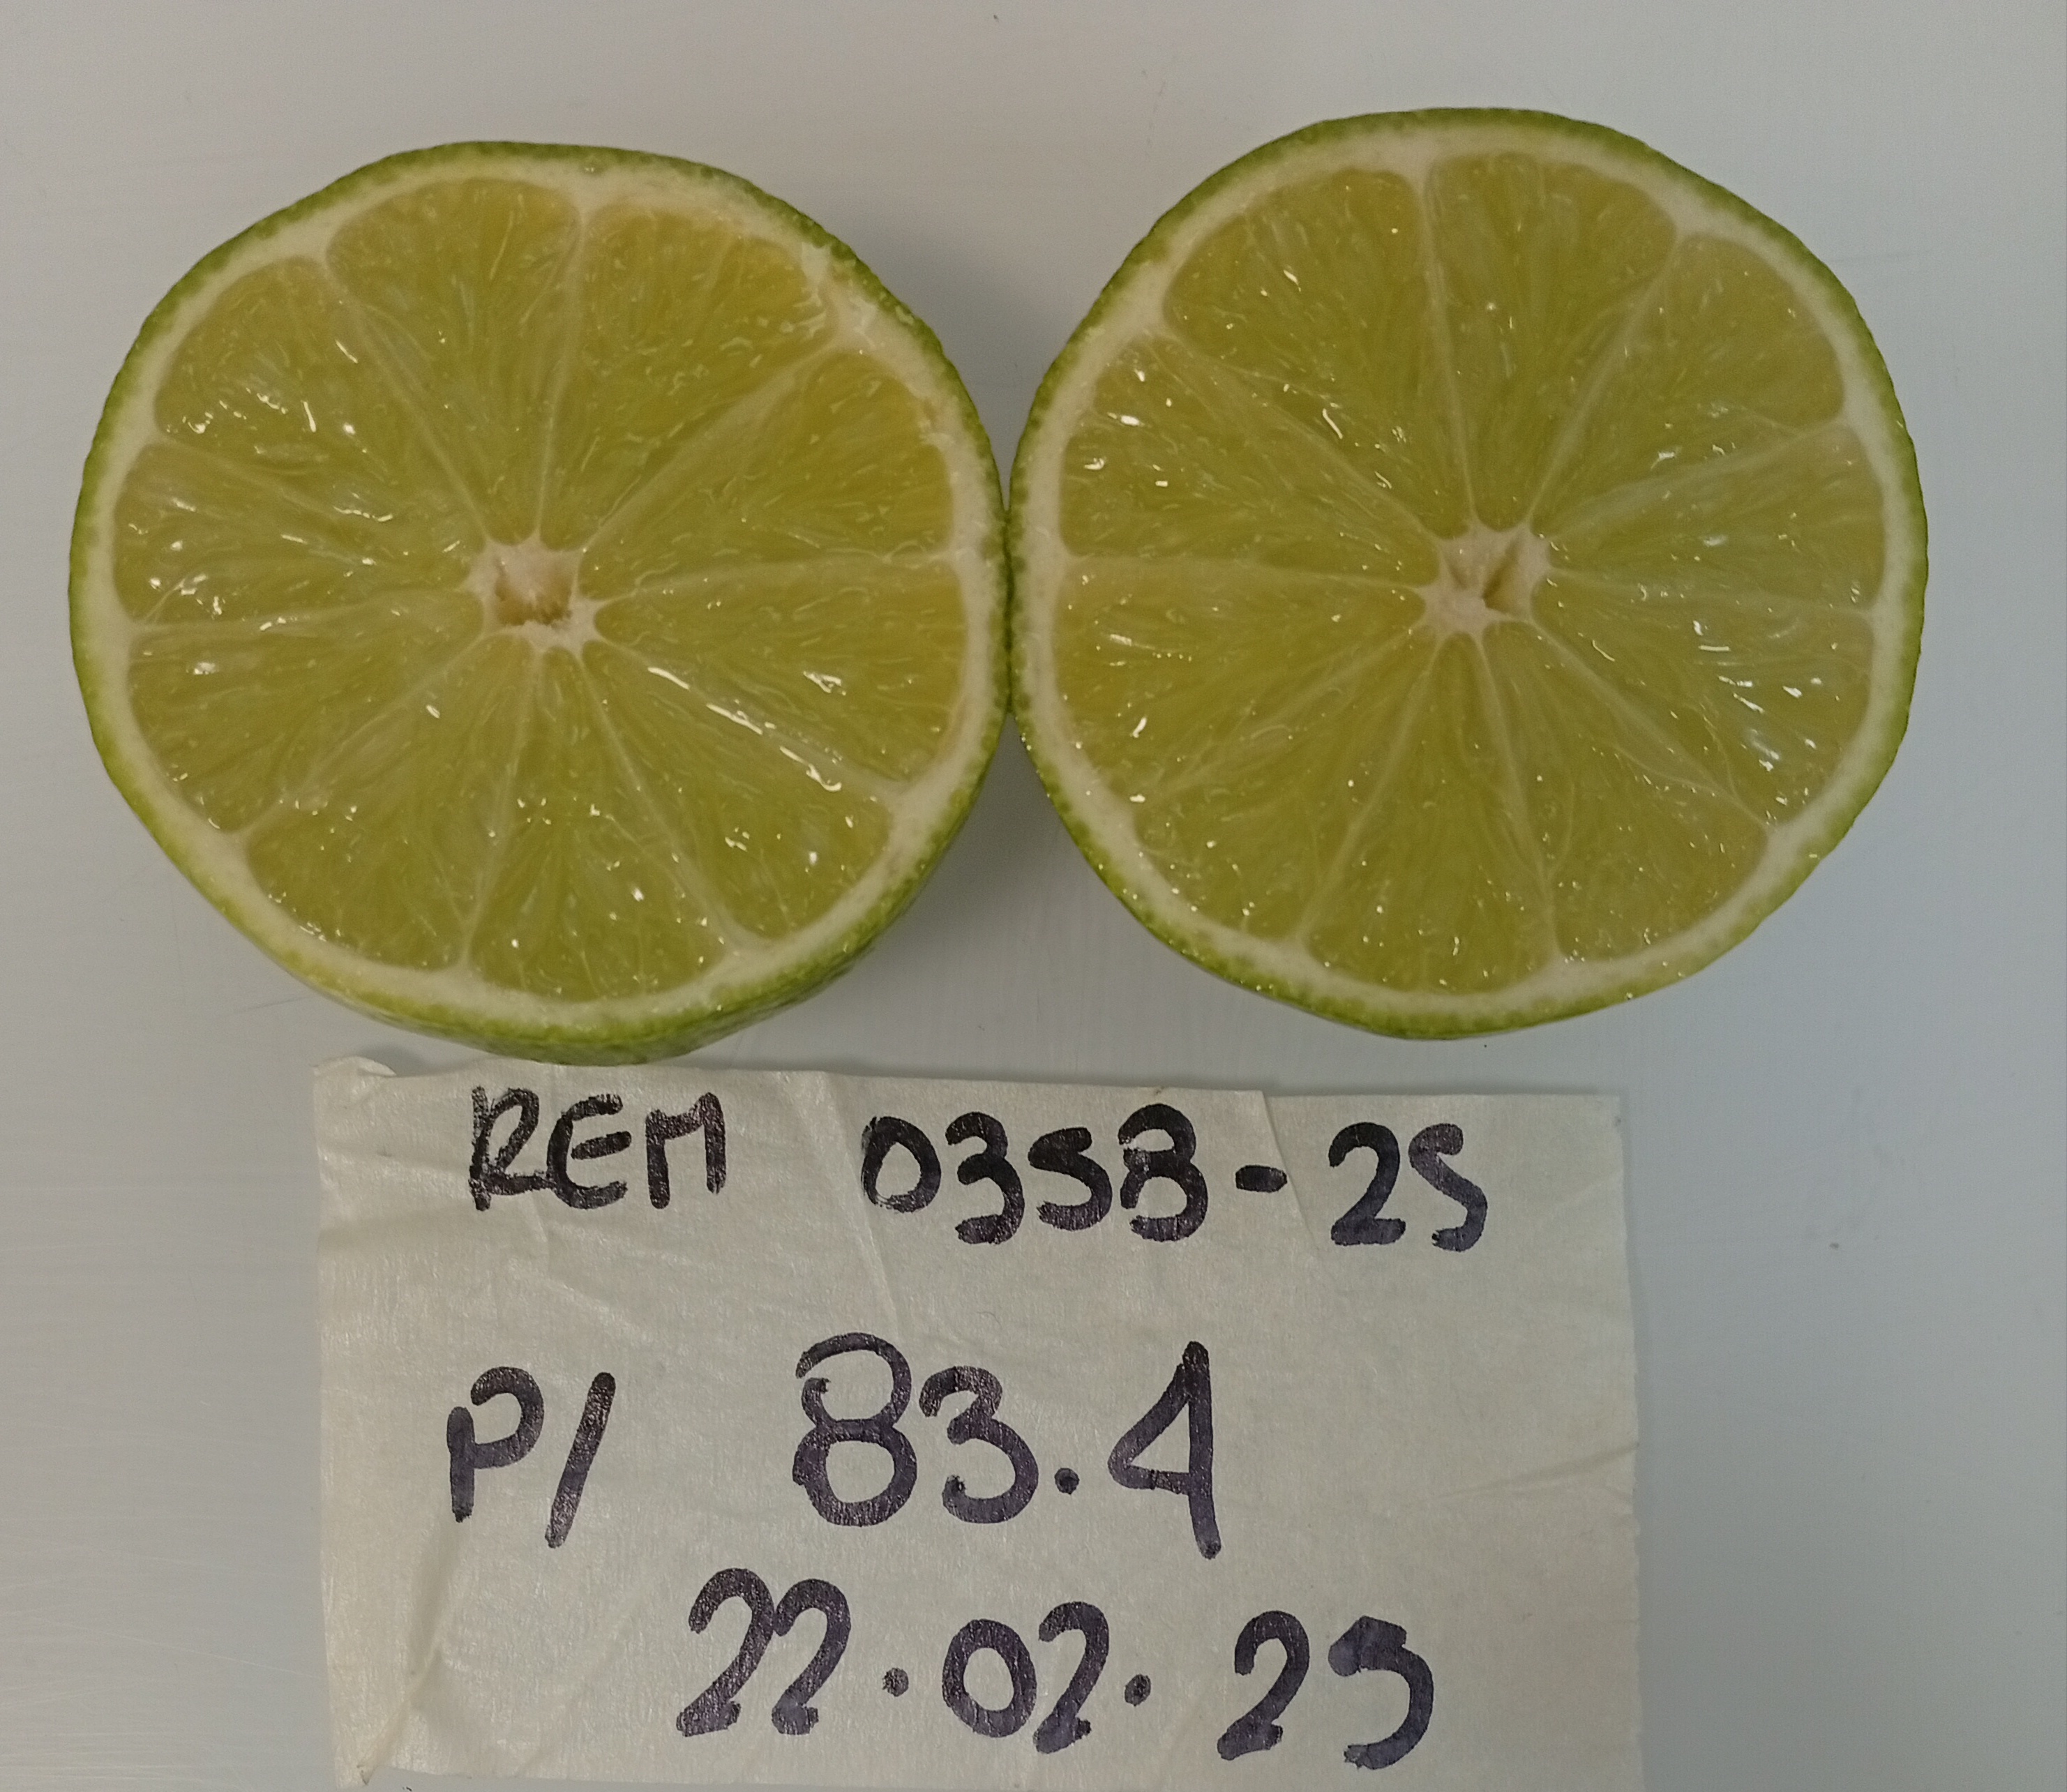 REM 0358-25
P/ 83.4
22.02.25